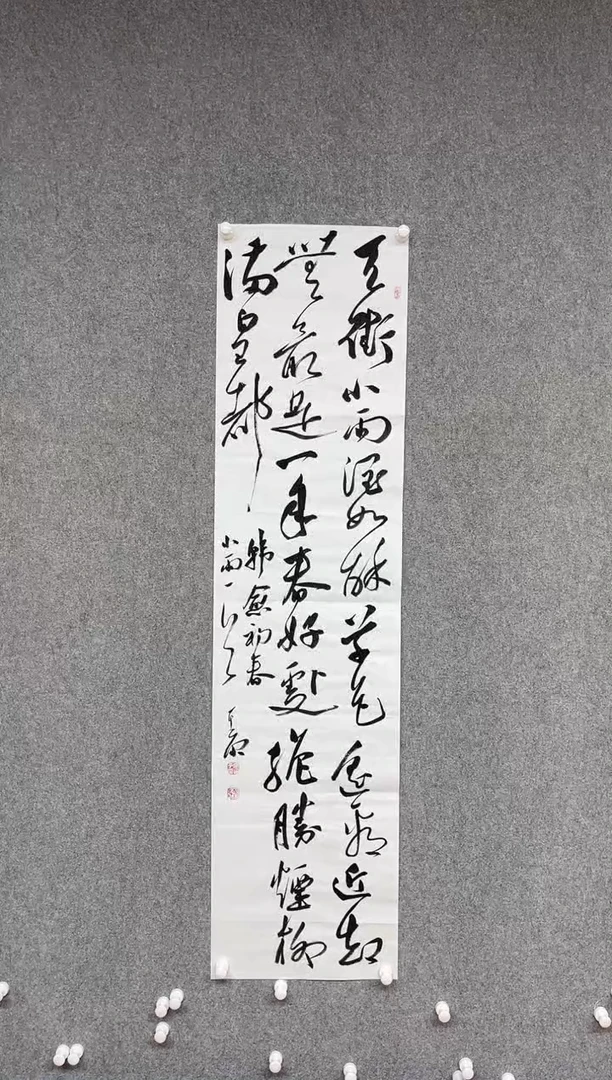 天街小雨润如酥草色遥看近却
無最是一年春好處絕勝煙柳
满皇都
韩愈初春
小雨一首